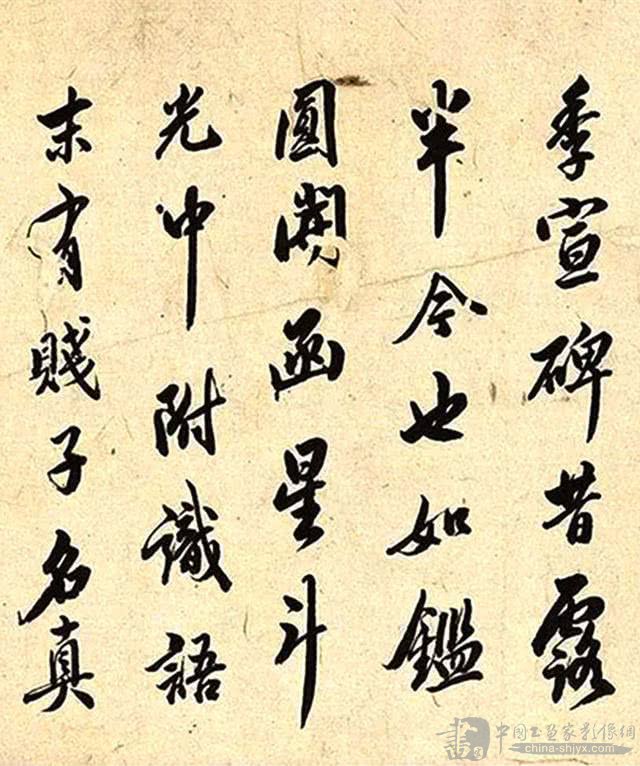 季宣碑昔露
半今也如鑑
圓開函星斗
光中附識語
末有賤子名真
書 中国书画家影像網
china-shjyx.com